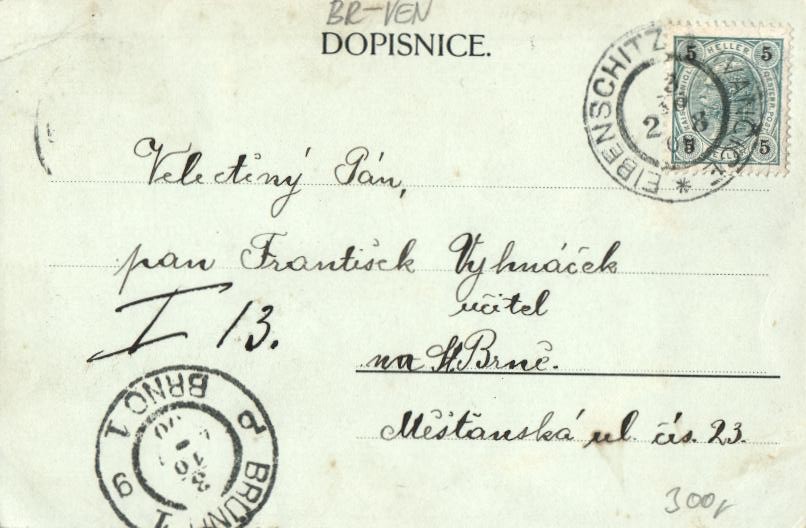 BR-VEN
DOPISNICE.
EIBENSCHITZ
2 8
5 HELLER 5
5 5
Velectěný Pán,
pan František Vyhnáček
učitel
na St. Brně.
I 13.
Měšťanská ul. čís. 23.
BRNO 1
9
BRÜNN 1
300,